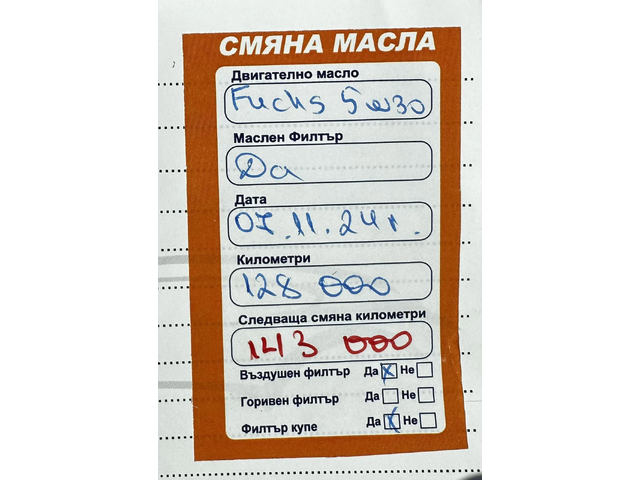 СМЯНА МАСЛА
Двигателно масло
Fuchs 5w30
Маслен Филтър
Da
Дата
07.11.24г.
Километри
128 000
Следваща смяна километри
143 000
Въздушен филтър Да Не
Горивен филтър Да Не
Филтър купе Да Не